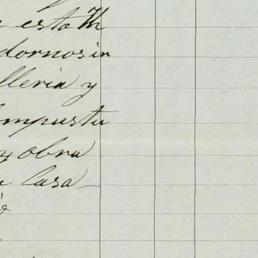 esta
dornos in
lleria y
ompusta
y obra
Casa